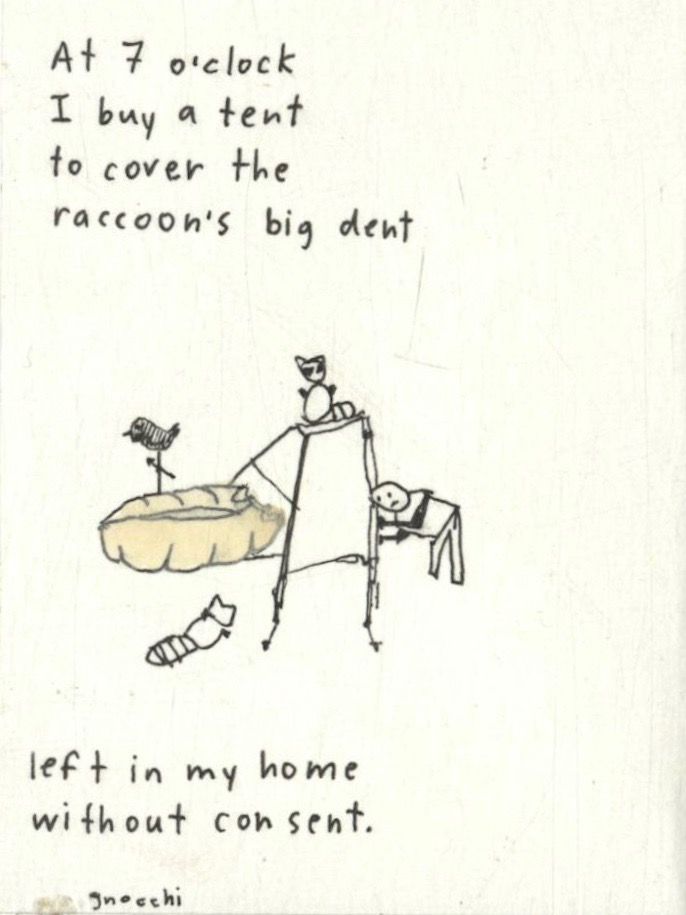 At 7 o'clock
I buy a tent
to cover the
raccoon's big dent
left in my home
without consent.
gnocchi